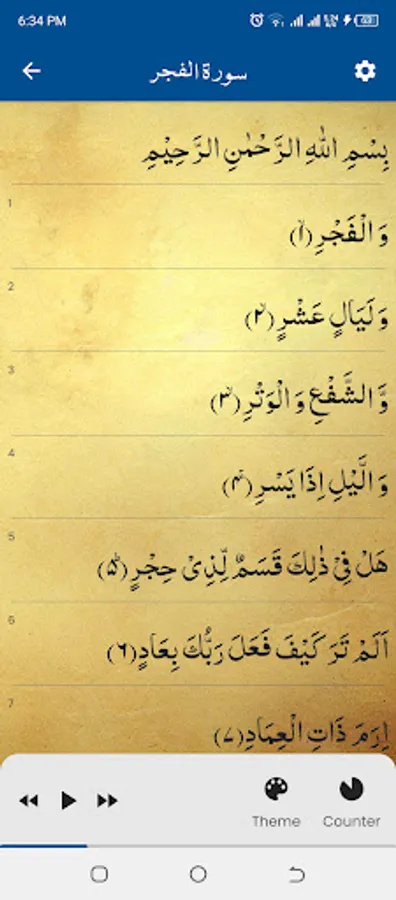 6:34 PM
سورة الفجر
بِسْمِ اللهِ الرَّحْمٰنِ الرَّحِيْمِ
1
وَالْفَجْرِ(۱)
2
وَلَيَالٍ عَشْرٍ(۲)
3
وَّالشَّفْعِ وَالْوَتْرِ(۳)
4
وَالَّيْلِ اِذَا يَسْرِ(۴)
5
هَلْ فِيْ ذٰلِكَ قَسَمٌ لِّذِيْ حِجْرٍ(۵)
6
اَلَمْ تَرَ كَيْفَ فَعَلَ رَبُّكَ بِعَادٍ(۶)
7
اِرَمَ ذَاتِ الْعِمَادِ(۷)
Theme Counter